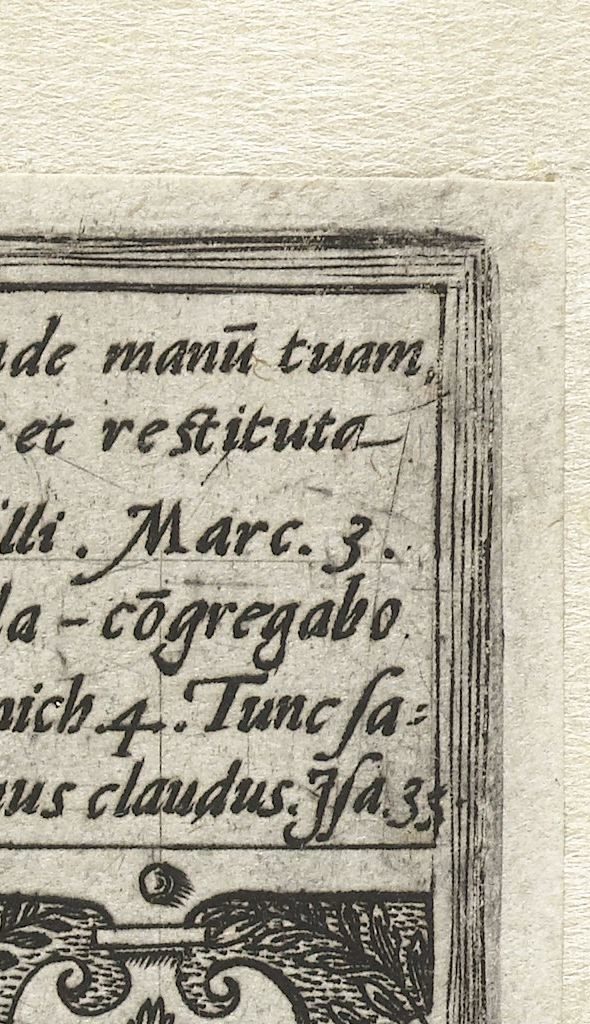 nde manū tuam,
et restituta
illi. Marc. 3.
la - cōgregabo
mich 4. Tunc sa=
us claudus. Jsa. 35.